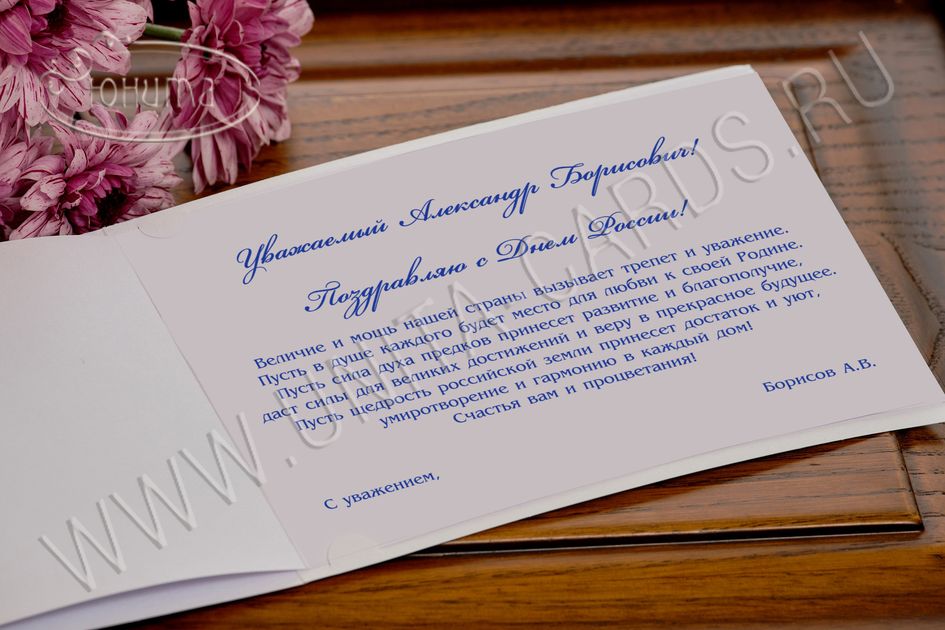 Юнита
WWW.UNITA-CARDS.RU
Уважаемый Александр Борисович!
Поздравляю с Днем России!
Величие и мощь нашей страны вызывает трепет и уважение.
Пусть в душе каждого будет место для любви к своей Родине.
Пусть сила духа предков принесет развитие и благополучие,
даст силы для великих достижений и веру в прекрасное будущее.
Пусть щедрость российской земли принесет достаток и уют,
умиротворение и гармонию в каждый дом!
Счастья вам и процветания!
С уважением,
Борисов А.В.